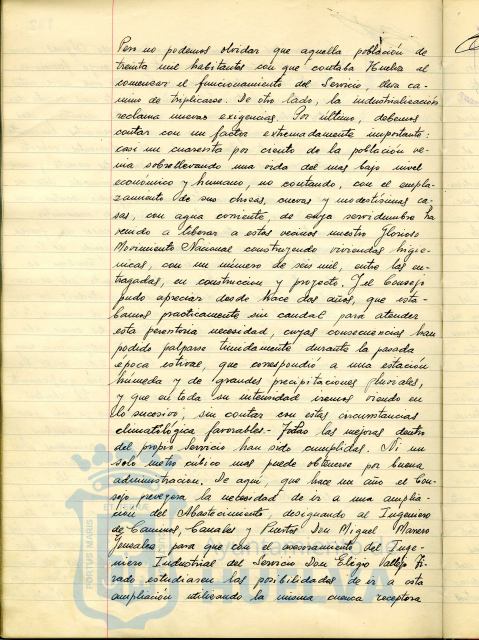 Pero no podemos olvidar que aquella población de
treinta mil habitantes con que contaba Huelva al
comenzar el funcionamiento del Servicio, lleva ca-
mino de triplicarse. De otro lado, la industrialización
reclama nuevas exigencias. Por último, debemos
contar con un factor extremadamente importante:
casi un cuarenta por ciento de la población ve-
nía sobrellevando una vida del mas bajo nivel
económico y humano, no contando, con el empla-
zamiento de sus chozas, cuevas y modestísimas ca-
sas, con agua corriente, de cuya servidumbre ha
venido a liberar a estos vecinos nuestro Glorioso
Movimiento Nacional construyendo viviendas higie-
nicas, con un número de seis mil, entre las en-
tregadas, en construccion y proyecto. Y el Consejo
pudo apreciar desde hace dos años, que esta-
bamos practicamente sin caudal para atender
esta perentoria necesidad, cuyas consecuencias han
podido palparse timidamente durante la pasada
época estival, que correspondió a una estación
humeda y de grandes precipitaciones pluviales,
y que en toda su intensidad iremos viendo en
lo sucesivo, sin contar con estas circunstancias
climatológica favorables.- Todas las mejoras dentro
del propio Servicio han sido cumplidas. Ni un
solo metro cúbico mas puede obtenerse por buena
administracion. De aquí, que hace un año el Con-
sejo preveyera la necesidad de ir a una amplia-
ción del Abastecimiento, designando al Ingeniero
de Caminos, Canales y Puertos Don Miguel Marrero
Gonzalez para que con el asesoramiento del Inge-
niero Industrial del Servicio Don Eligio Vallejo
estudiasen las posibilidades de ir a esta
ampliación utilizando la misma cuenca receptora
PORTUS MARIS
Ayuntamiento de
HUELVA